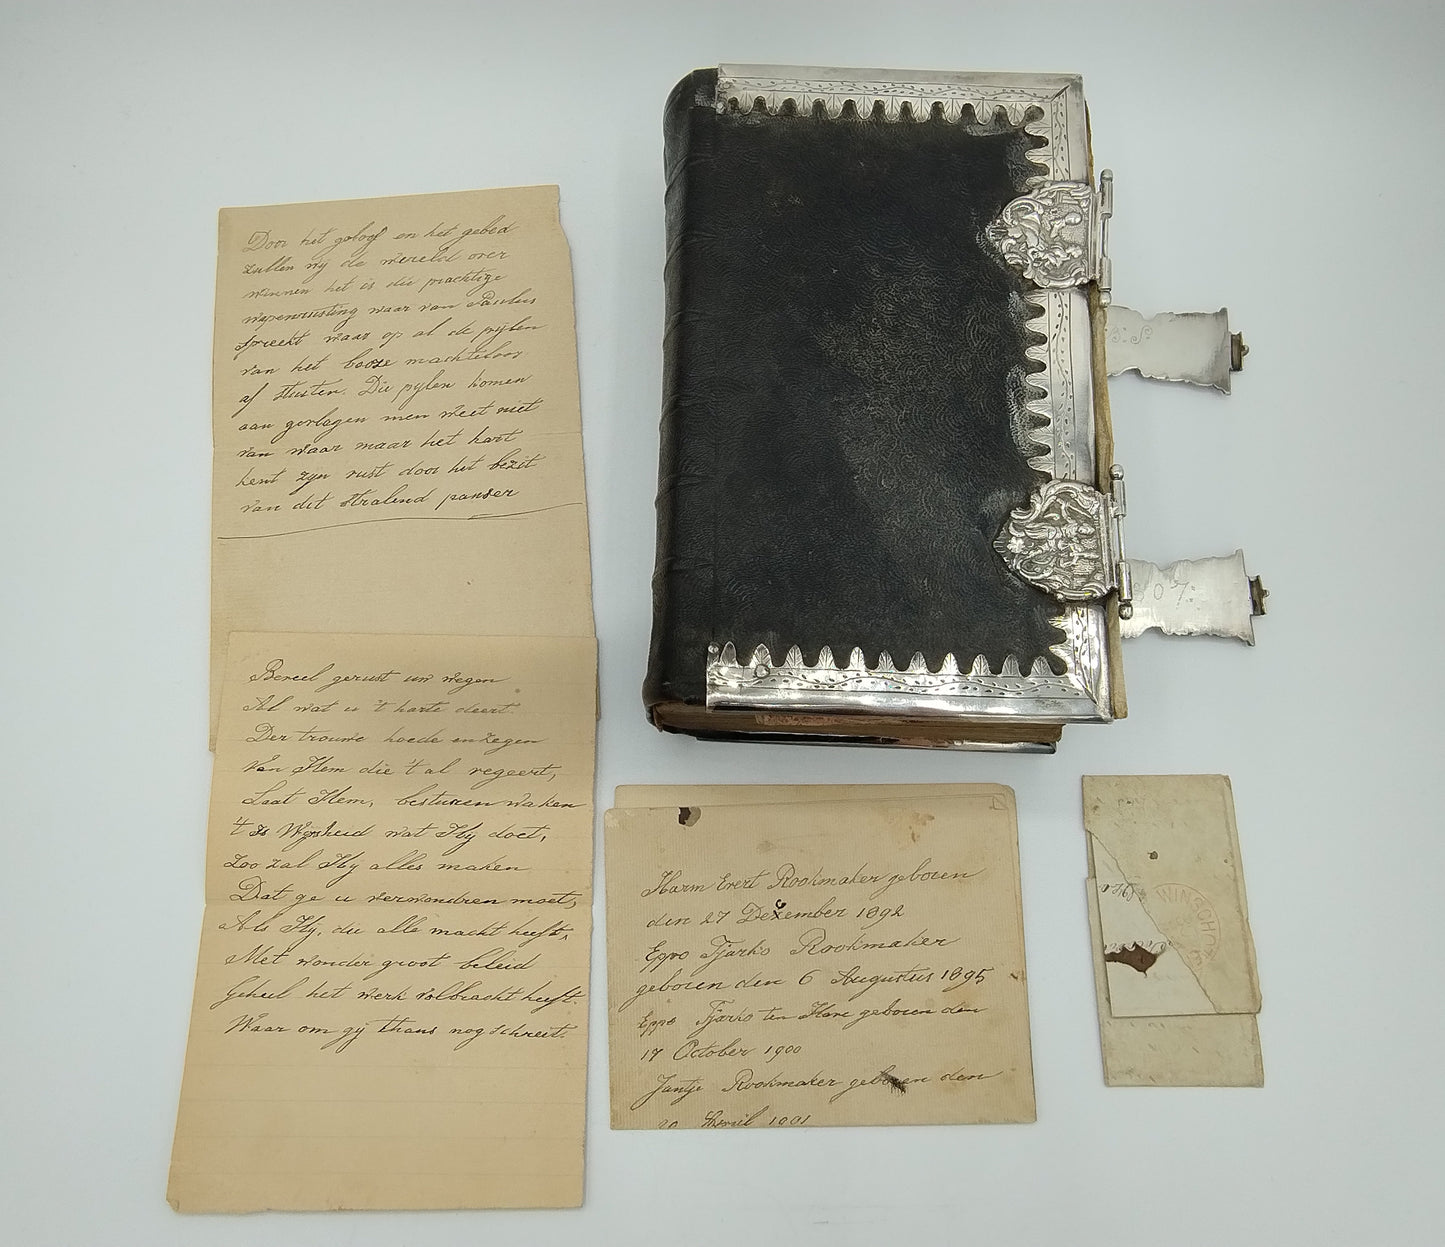 Door het geloof en het gebed
zullen wy de wereld over
winnen het is die prachtige
wapenrusting waar van Paulus
spreekt waar op al de pylen
van het booze machteloos
af stuiten. Die pylen komen
aan gevlogen men weet niet
van waar maar het hart
kent zyn rust door het bezit
van dit stralend panser
Beveel gerust uw wegen
Al wat u 't harte deert.
Der trouwe hoede en zegen
Van Hem die 't al regeert,
Laat Hem, besturen waken
't Is Wysheid wat Hy doet,
Zoo zal Hy alles maken
Dat ge u verwondren moet,
Als Hy, die alle macht heeft,
Met wonder groot beleid
Geheel het werk volbracht heeft.
Waar om gy thans nog schreit.
Harm Evert Rookmaker geboren
den 27 December 1892
Eppo Tjarko Rookmaker
geboren den 6 Augustus 1895
Eppo Tjarko ten Have geboren den
17 October 1900
Jantje Rookmaker geboren den
20 April 1901
B:S:
807:
WINSCHOTE